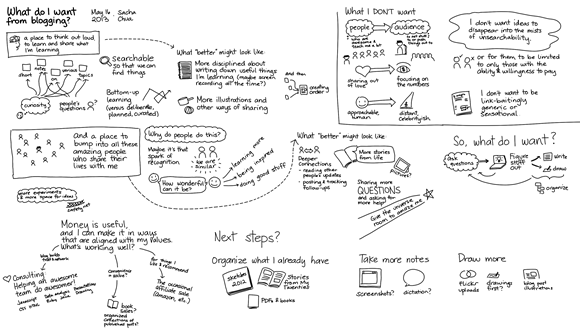 What do I want
from blogging?
May 16
2013
Sacha
Chua
a place to think out loud
to learn and share what
I'm learning
short
notes
on
various
topics
curiosity
people's
questions?
searchable
so that we can
find things
Bottom-up
learning
(versus deliberate,
planned, curated)
What "better" might look like:
More disciplined about
writing down useful things
I'm learning (maybe screen
recording all the time?)
More illustrations and
other ways of sharing
and then
creating
order
What I DON'T want
people
audience
sharing out of
love
focusing on
the numbers
approachable,
human
distant,
celebrity-ish
I don't want ideas to
disappear into the mists
of unsearchability.
or for them to be limited
to only those with the
ability & willingness to pay
I don't want to
be link-baitingly
generic or
sensational.
And a place to
bump into all these
amazing people
who share their
lives with me
more experiments
& more space for ideas
safety net
Why do people do this?
Maybe it's that
spark of
recognition.
we are
similar!
How wonderful
can it be?
learning more
being inspired
doing good stuff
What "better" might look like:
Deeper
connections
- reading other
people's updates
- posting & tracking
follow-ups
More stories
from life
pictures?
Sharing more
QUESTIONS
and asking for
more help!
Give the universe
room to amaze me
So, what do I want?
ask
questions
Figure
stuff
out
write
draw
organize
Money is useful,
and I can make it in ways
that are aligned with my values.
What's working well?
Consulting
Helping an awesome
team do awesome!
book
sales?
organized
collections of
published posts?
for things
I like & recommend
The occasional
affiliate sale
(Amazon, etc.)
Next steps?
Organize what I already have
sketches
2012
Stories
from My
Twenties
PDFs & books
Take more notes
screenshots?
dictation?
Draw more
flickr
uploads
drawings
first?
blog post
illustrations